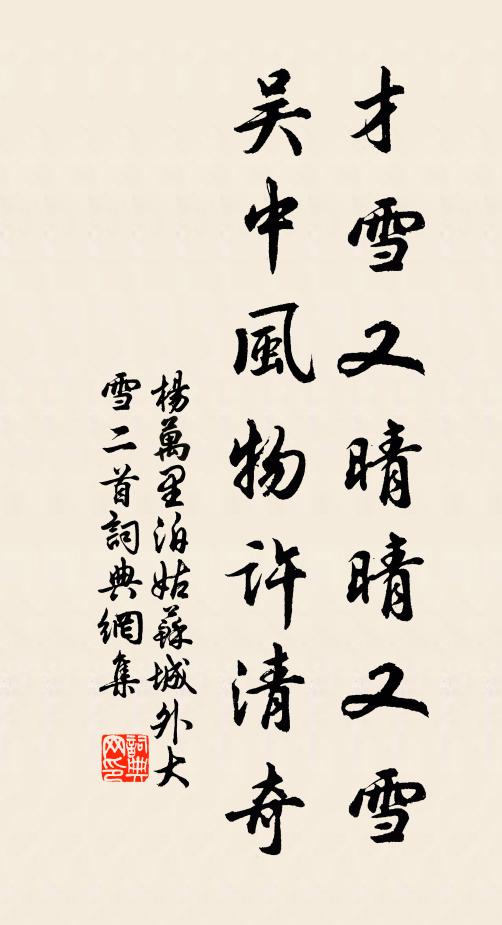 才雪又晴晴又雪
吴中風物許清奇
楊萬里泊姑蘇城外大
雪二首詞典網集
詞典
网印